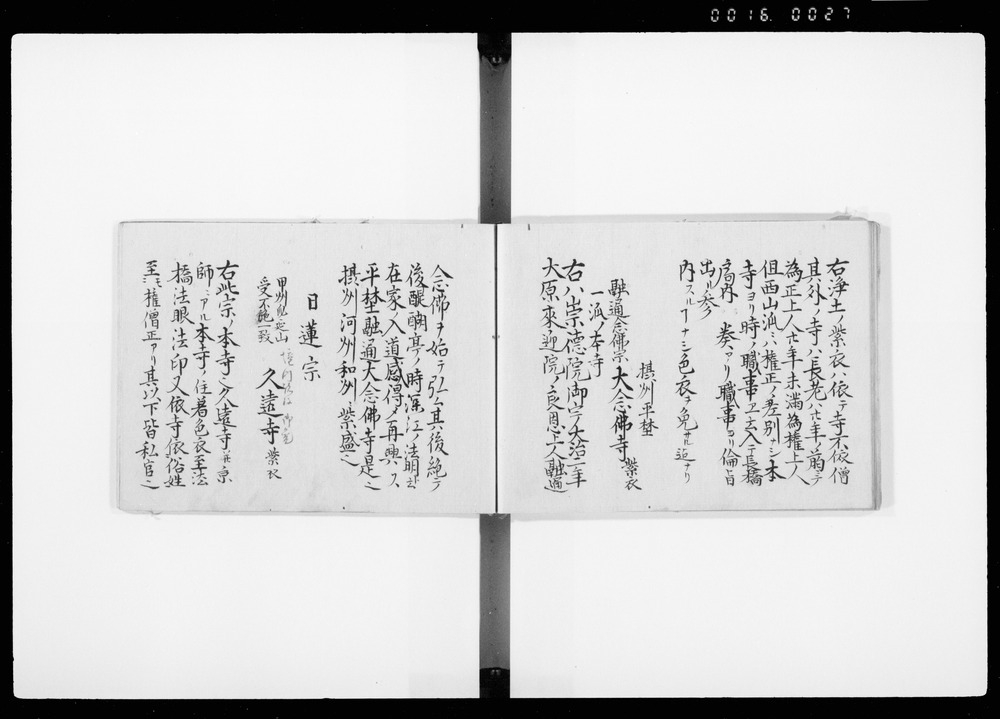 0016. 0027
右浄土ノ紫衣ハ依テ寺不依僧
其外ノ寺ハ長老ハ廿年ノ前ニテ
為正上人廿年未満為権上人
但西山派ニハ権正ノ差別ナシ本
寺ヨリ時ノ職事ヱ去入テ長橋
局内 奏アリ職事ヨリ倫旨
出ル参
内スルヿナシ色衣ヲ免サル迄ナリ
摂州平埜
融通念佛宗 大念佛寺 紫衣
一派ノ本寺
右ハ崇徳院御宇大治二年
大原来迎院ノ良忍上人融通
念佛ヲ始テ弘ム其後絶テ
後醍醐帝ノ時深江ノ法明ト云
在家入道感得メ再興ス
平埜融通大念佛寺是也
摂州河州和州紫盛也
日蓮宗
甲州身延山
受不施一致 久遠寺 紫衣
右此宗ノ本寺也久遠寺并京
師ニアル本寺ノ住着色衣至法
橋法眼法印又依寺依俗姓
至テハ権僧正アリ其以下皆私官也